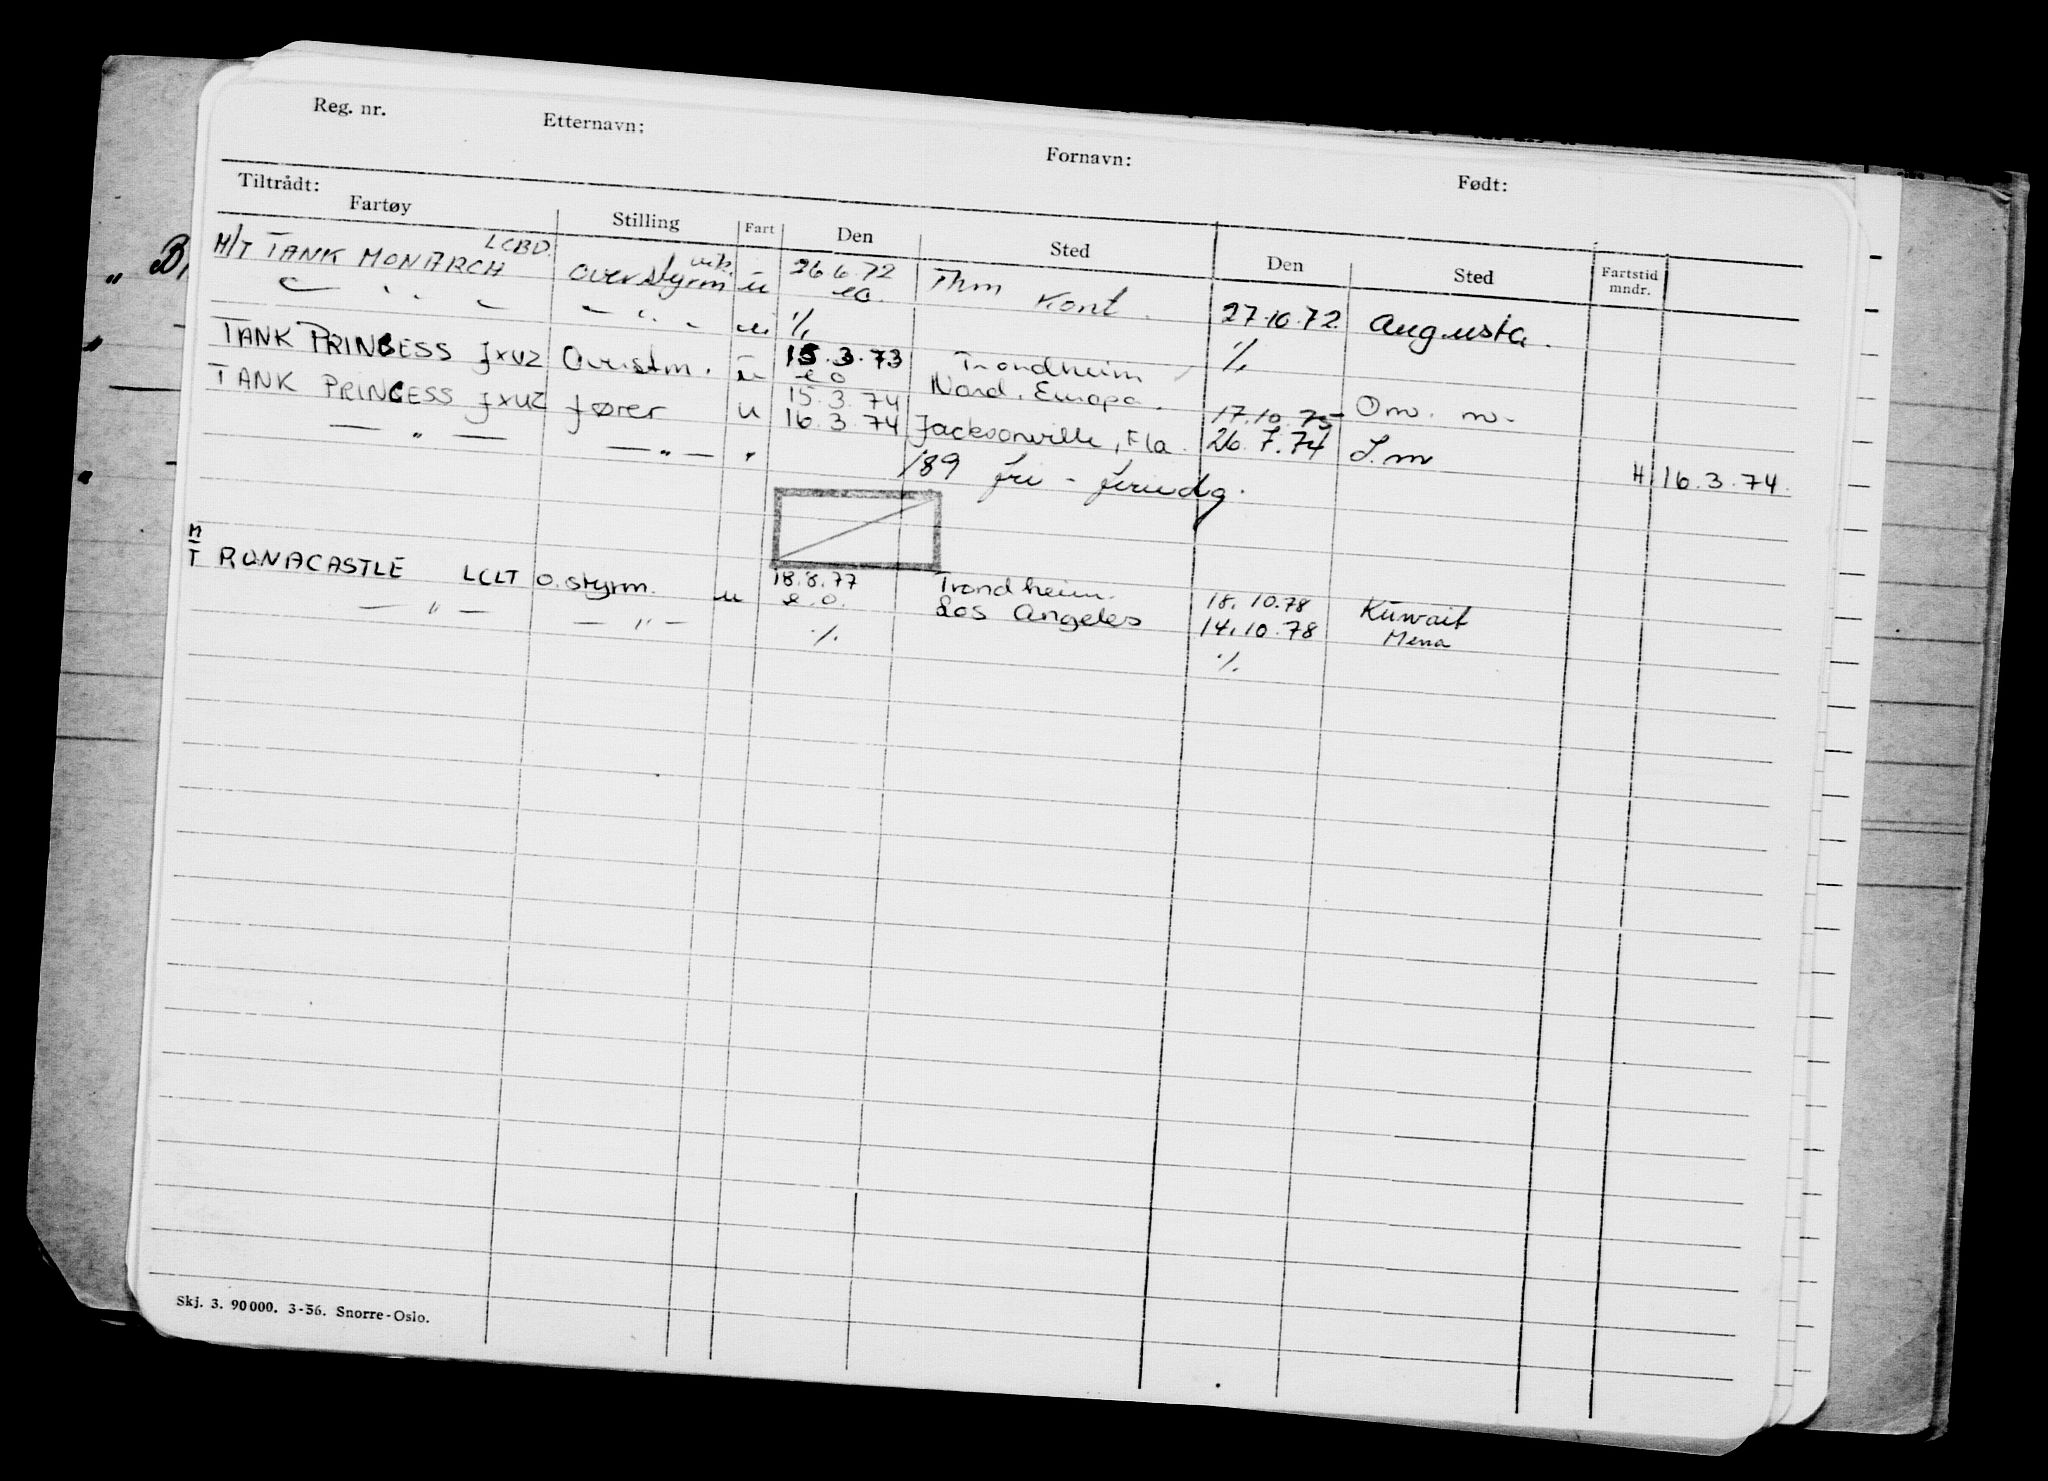 Reg. nr. Etternavn: Fornavn: Født:
Tiltrådt:
Fartøy Stilling Fart Den Sted Den Sted Fartstid mndr.
M/T TANK MONARCH LCBD. overstyrm vik. u 26.6.72 Thm
e.o. Kont. 27.10.72. Augusta.
— " — — " — u. ·/. ·/.
TANK PRINCESS JXUZ Overstm. u 15.3.73 Trondheim
e o Nord. Europa.
TANK PRINCESS JXUZ fører u 15.3.74 17.10.75 Om. m.
— " — — " — " 16.3.74 Jacksonville, Fla. 26.7.74 S.m H 16.3.74.
189 fri -
M/T RONACASTLE LCLT O. styrm. u 18.8.77 Trondheim.
— " — — " — e.o. Los Angeles 18.10.78 Kuwait
·/. 14.10.78 Mena
·/.
Skj. 3. 90000. 3-56. Snorre-Oslo.